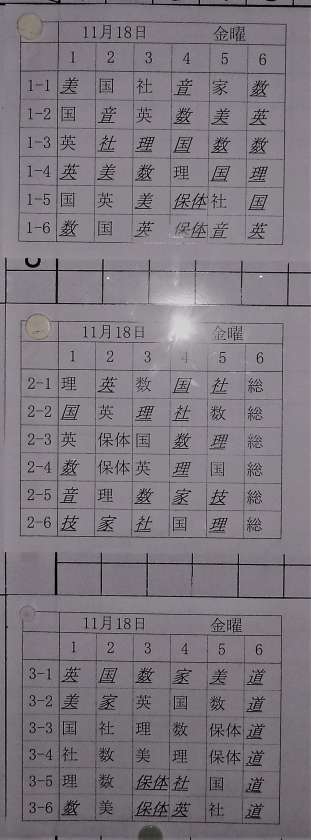 11月18日 金曜
1 2 3 4 5 6
1-1 美 国 社 音 家 数
1-2 国 音 英 数 美 英
1-3 英 社 理 国 数 数
1-4 英 美 数 理 国 理
1-5 国 英 美 保体 社 国
1-6 数 国 英 保体 音 英
11月18日 金曜
1 2 3 4 5 6
2-1 理 英 数 国 社 総
2-2 国 英 理 社 数 総
2-3 英 保体 国 数 理 総
2-4 数 保体 英 理 国 総
2-5 音 理 数 家 技 総
2-6 技 家 社 国 理 総
11月18日 金曜
1 2 3 4 5 6
3-1 英 国 数 家 美 道
3-2 美 家 英 国 数 道
3-3 国 社 理 数 保体 道
3-4 社 数 美 理 保体 道
3-5 理 数 保体 社 国 道
3-6 数 美 保体 英 社 道